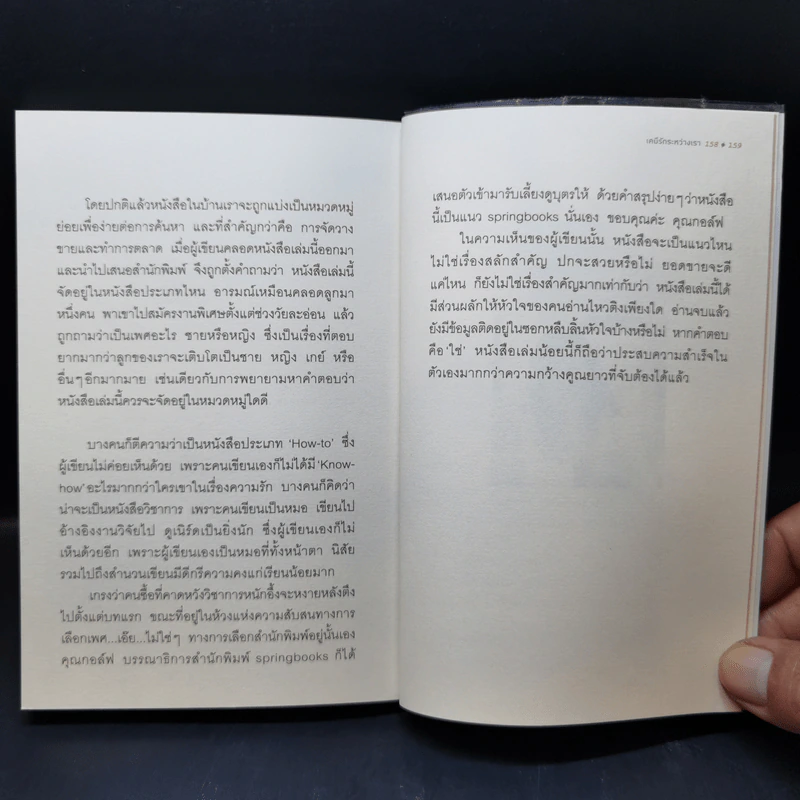 โดยปกติแล้วหนังสือในบ้านเราจะถูกแบ่งเป็นหมวดหมู่
ย่อยเพื่อง่ายต่อการค้นหา และที่สำคัญกว่าคือ การจัดวาง
ขายและทำการตลาด เมื่อผู้เขียนคลอดหนังสือเล่มนี้ออกมา
และนำไปเสนอสำนักพิมพ์ จึงถูกตั้งคำถามว่า หนังสือเล่มนี้
จัดอยู่ในหนังสือประเภทไหน อารมณ์เหมือนคลอดลูกมา
หนึ่งคน พาเขาไปสมัครงานพิเศษตั้งแต่ช่วงวัยละอ่อน แล้ว
ถูกถามว่าเป็นเพศอะไร ชายหรือหญิง ซึ่งเป็นเรื่องที่ตอบ
ยากมากว่าลูกของเราจะเติบโตเป็นชาย หญิง เกย์ หรือ
อื่นๆอีกมากมาย เช่นเดียวกับการพยายามหาคำตอบว่า
หนังสือเล่มนี้ควรจะจัดอยู่ในหมวดหมู่ใดดี
บางคนก็ตีความว่าเป็นหนังสือประเภท 'How-to' ซึ่ง
ผู้เขียนไม่ค่อยเห็นด้วย เพราะคนเขียนเองก็ไม่ได้มี 'Know-
how' อะไรมากกว่าใครเขาในเรื่องความรัก บางคนก็คิดว่า
น่าจะเป็นหนังสือวิชาการ เพราะคนเขียนเป็นหมอ เขียนไป
อ้างอิงงานวิจัยไป ดูเนิร์ดเป็นยิ่งนัก ซึ่งผู้เขียนเองก็ไม่
เห็นด้วยอีก เพราะผู้เขียนเองเป็นหมอที่ทั้งหน้าตา นิสัย
รวมไปถึงสำนวนเขียนมีดีกรีความคงแก่เรียนน้อยมาก
เกรงว่าคนซื้อที่คาดหวังวิชาการหนักอึ้งจะหงายหลังตึง
ไปตั้งแต่บทแรก ขณะที่อยู่ในห้วงแห่งความสับสนทางการ
เลือกเพศ...เอ๊ย...ไม่ใช่ๆ ทางการเลือกสำนักพิมพ์อยู่นั้นเอง
คุณกอล์ฟ บรรณาธิการสำนักพิมพ์ springbooks ก็ได้
เคมีรักระหว่างเรา 158 ♦ 159
เสนอตัวเข้ามารับเลี้ยงดูบุตรให้ ด้วยคำสรุปง่ายๆว่าหนังสือ
นี้เป็นแนว springbooks นั่นเอง ขอบคุณค่ะ คุณกอล์ฟ
ในความเห็นของผู้เขียนนั้น หนังสือจะเป็นแนวไหน
ไม่ใช่เรื่องสลักสำคัญ ปกจะสวยหรือไม่ ยอดขายจะดี
แค่ไหน ก็ยังไม่ใช่เรื่องสำคัญมากเท่ากับว่า หนังสือเล่มนี้ได้
มีส่วนผลักให้หัวใจของคนอ่านไหวติงเพียงใด อ่านจบแล้ว
ยังมีข้อมูลติดอยู่ในซอกหลืบลิ้นหัวใจบ้างหรือไม่ หากคำตอบ
คือ 'ใช่' หนังสือเล่มน้อยนี้ก็ถือว่าประสบความสำเร็จใน
ตัวเองมากกว่าความกว้างคูณยาวที่จับต้องได้แล้ว